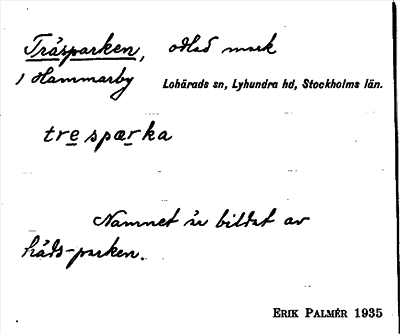 Träsparken, odlad mark
i Hammarby Lohärads sn, Lyhundra hd, Stockholms län.
trespærka
Namnet är bildat av
häds-parken.
ERIK PALMÉR 1935